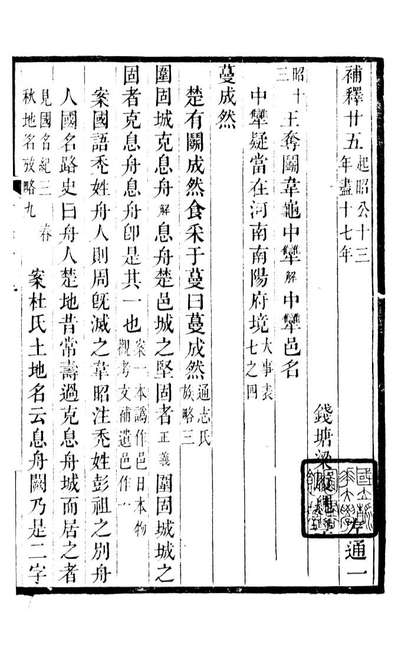 補釋廿五起昭公十三年盡十七年
錢塘梁 左通一
昭十三王奪鬬韋龜中犫解中犫邑名
中犫疑當在河南南陽府境大事表七之四
蔓成然
楚有鬬成然食采于蔓曰蔓成然通志氏族略三
圍固城克息舟解息舟楚邑城之堅固者正義圍固城城之
固者克息舟息舟卽是其一也案一本譌作邑日本物觀考文補遺邑作一
案國語禿姓舟人則周旣滅之韋昭注禿姓彭祖之別舟
人國名路史曰舟人楚地昔常壽過克息舟城而居之者
見國名紀三春秋地名攷略九 案杜氏土地名云息舟闕乃是二字